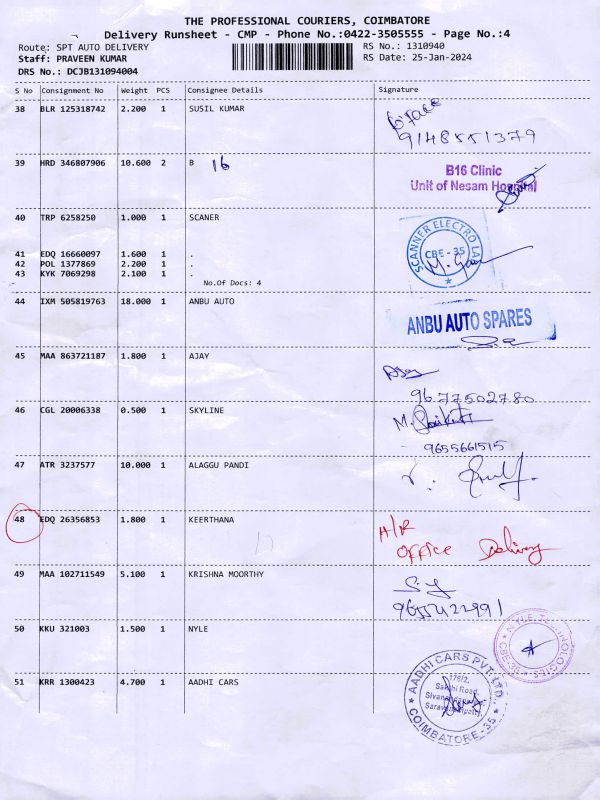 THE PROFESSIONAL COURIERS, COIMBATORE
Delivery Runsheet - CMP - Phone No.:0422-3505555 - Page No.:4
Route: SPT AUTO DELIVERY RS No.: 1310940
Staff: PRAVEEN KUMAR RS Date: 25-Jan-2024
DRS No.: DCJB131094004
S No Consignment No Weight PCS Consignee Details Signature
38 BLR 125318742 2.200 1 SUSIL KUMAR
9148551379
39 HRD 346807906 10.600 2 B 16
B16 Clinic
Unit of Nesam Hospital
40 TRP 6258250 1.000 1 SCANER
SCANNER ELECTRO LAB
CBE - 35
41 EDQ 16660097 1.600 1 .
42 POL 1377869 2.200 1 .
43 KYK 7069298 2.100 1 .
No.Of Docs: 4
44 IXM 505819763 18.000 1 ANBU AUTO
ANBU AUTO SPARES
45 MAA 863721187 1.800 1 AJAY
Ajay
9677502780
46 CGL 20006338 0.500 1 SKYLINE
9655661515
47 ATR 3237577 10.000 1 ALAGGU PANDI
48 EDQ 26356853 1.800 1 KEERTHANA
H/R
office Delivery
49 MAA 102711549 5.100 1 KRISHNA MOORTHY
9655422991
50 KKU 321003 1.500 1 NYLE
NYLE TECHNOLOGIES
CBE-35
51 KRR 1300423 4.700 1 AADHI CARS
AADHI CARS PVT LTD.,
176/2,
Sakthi Road,
COIMBATORE-35